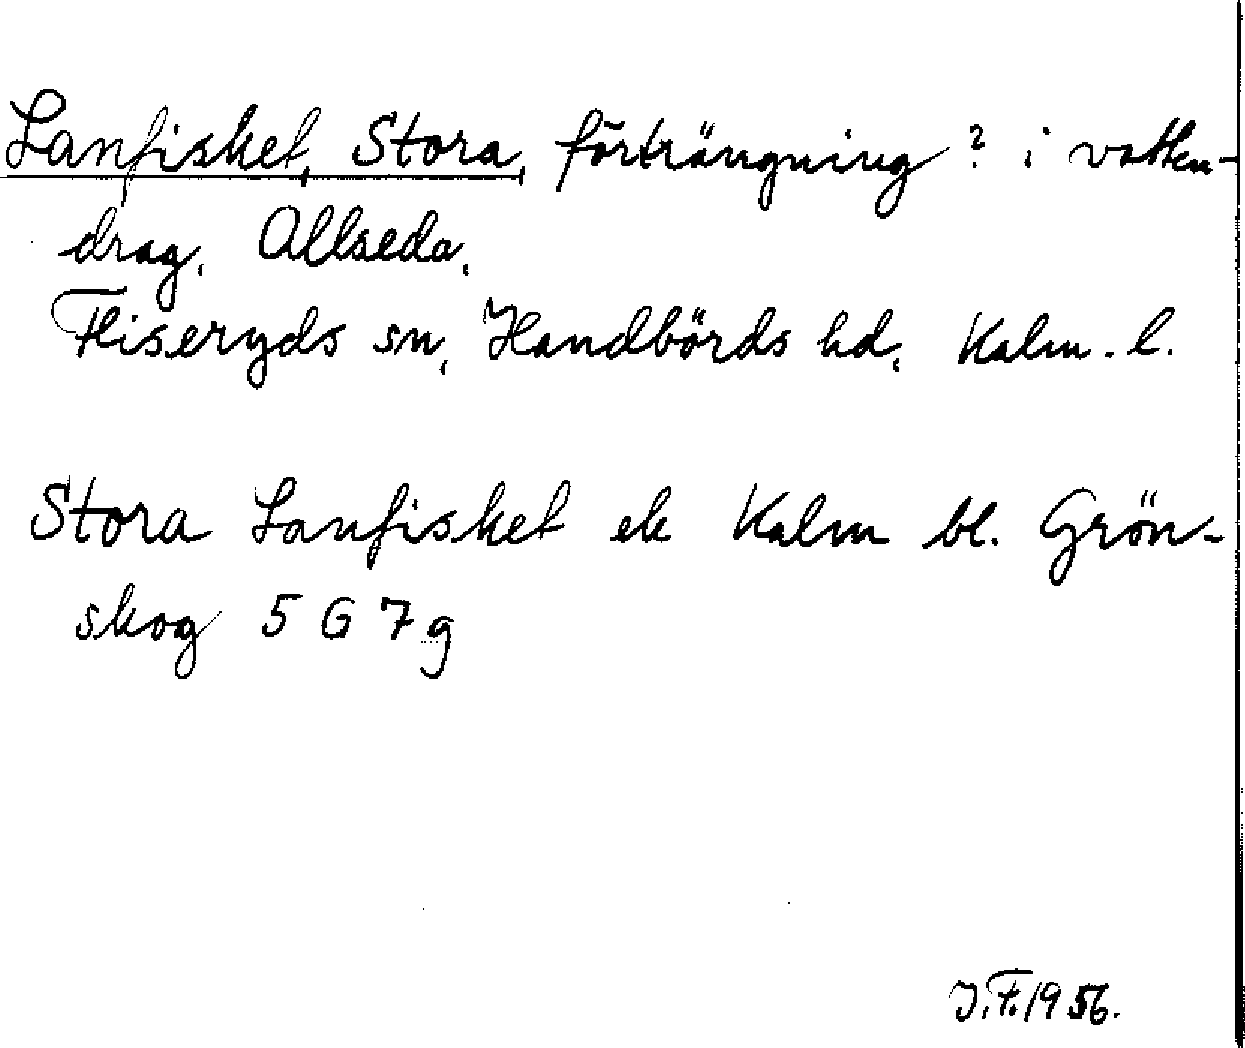 Lanfisket, Stora, förträngning? i vatten-
drag, Allseda,
Fliseryds sn, Handbörds hd, Kalm. l.
Stora Lanfisket ek Kalm bl. Grön-
skog 5 G 7 g
J.F. 1956.